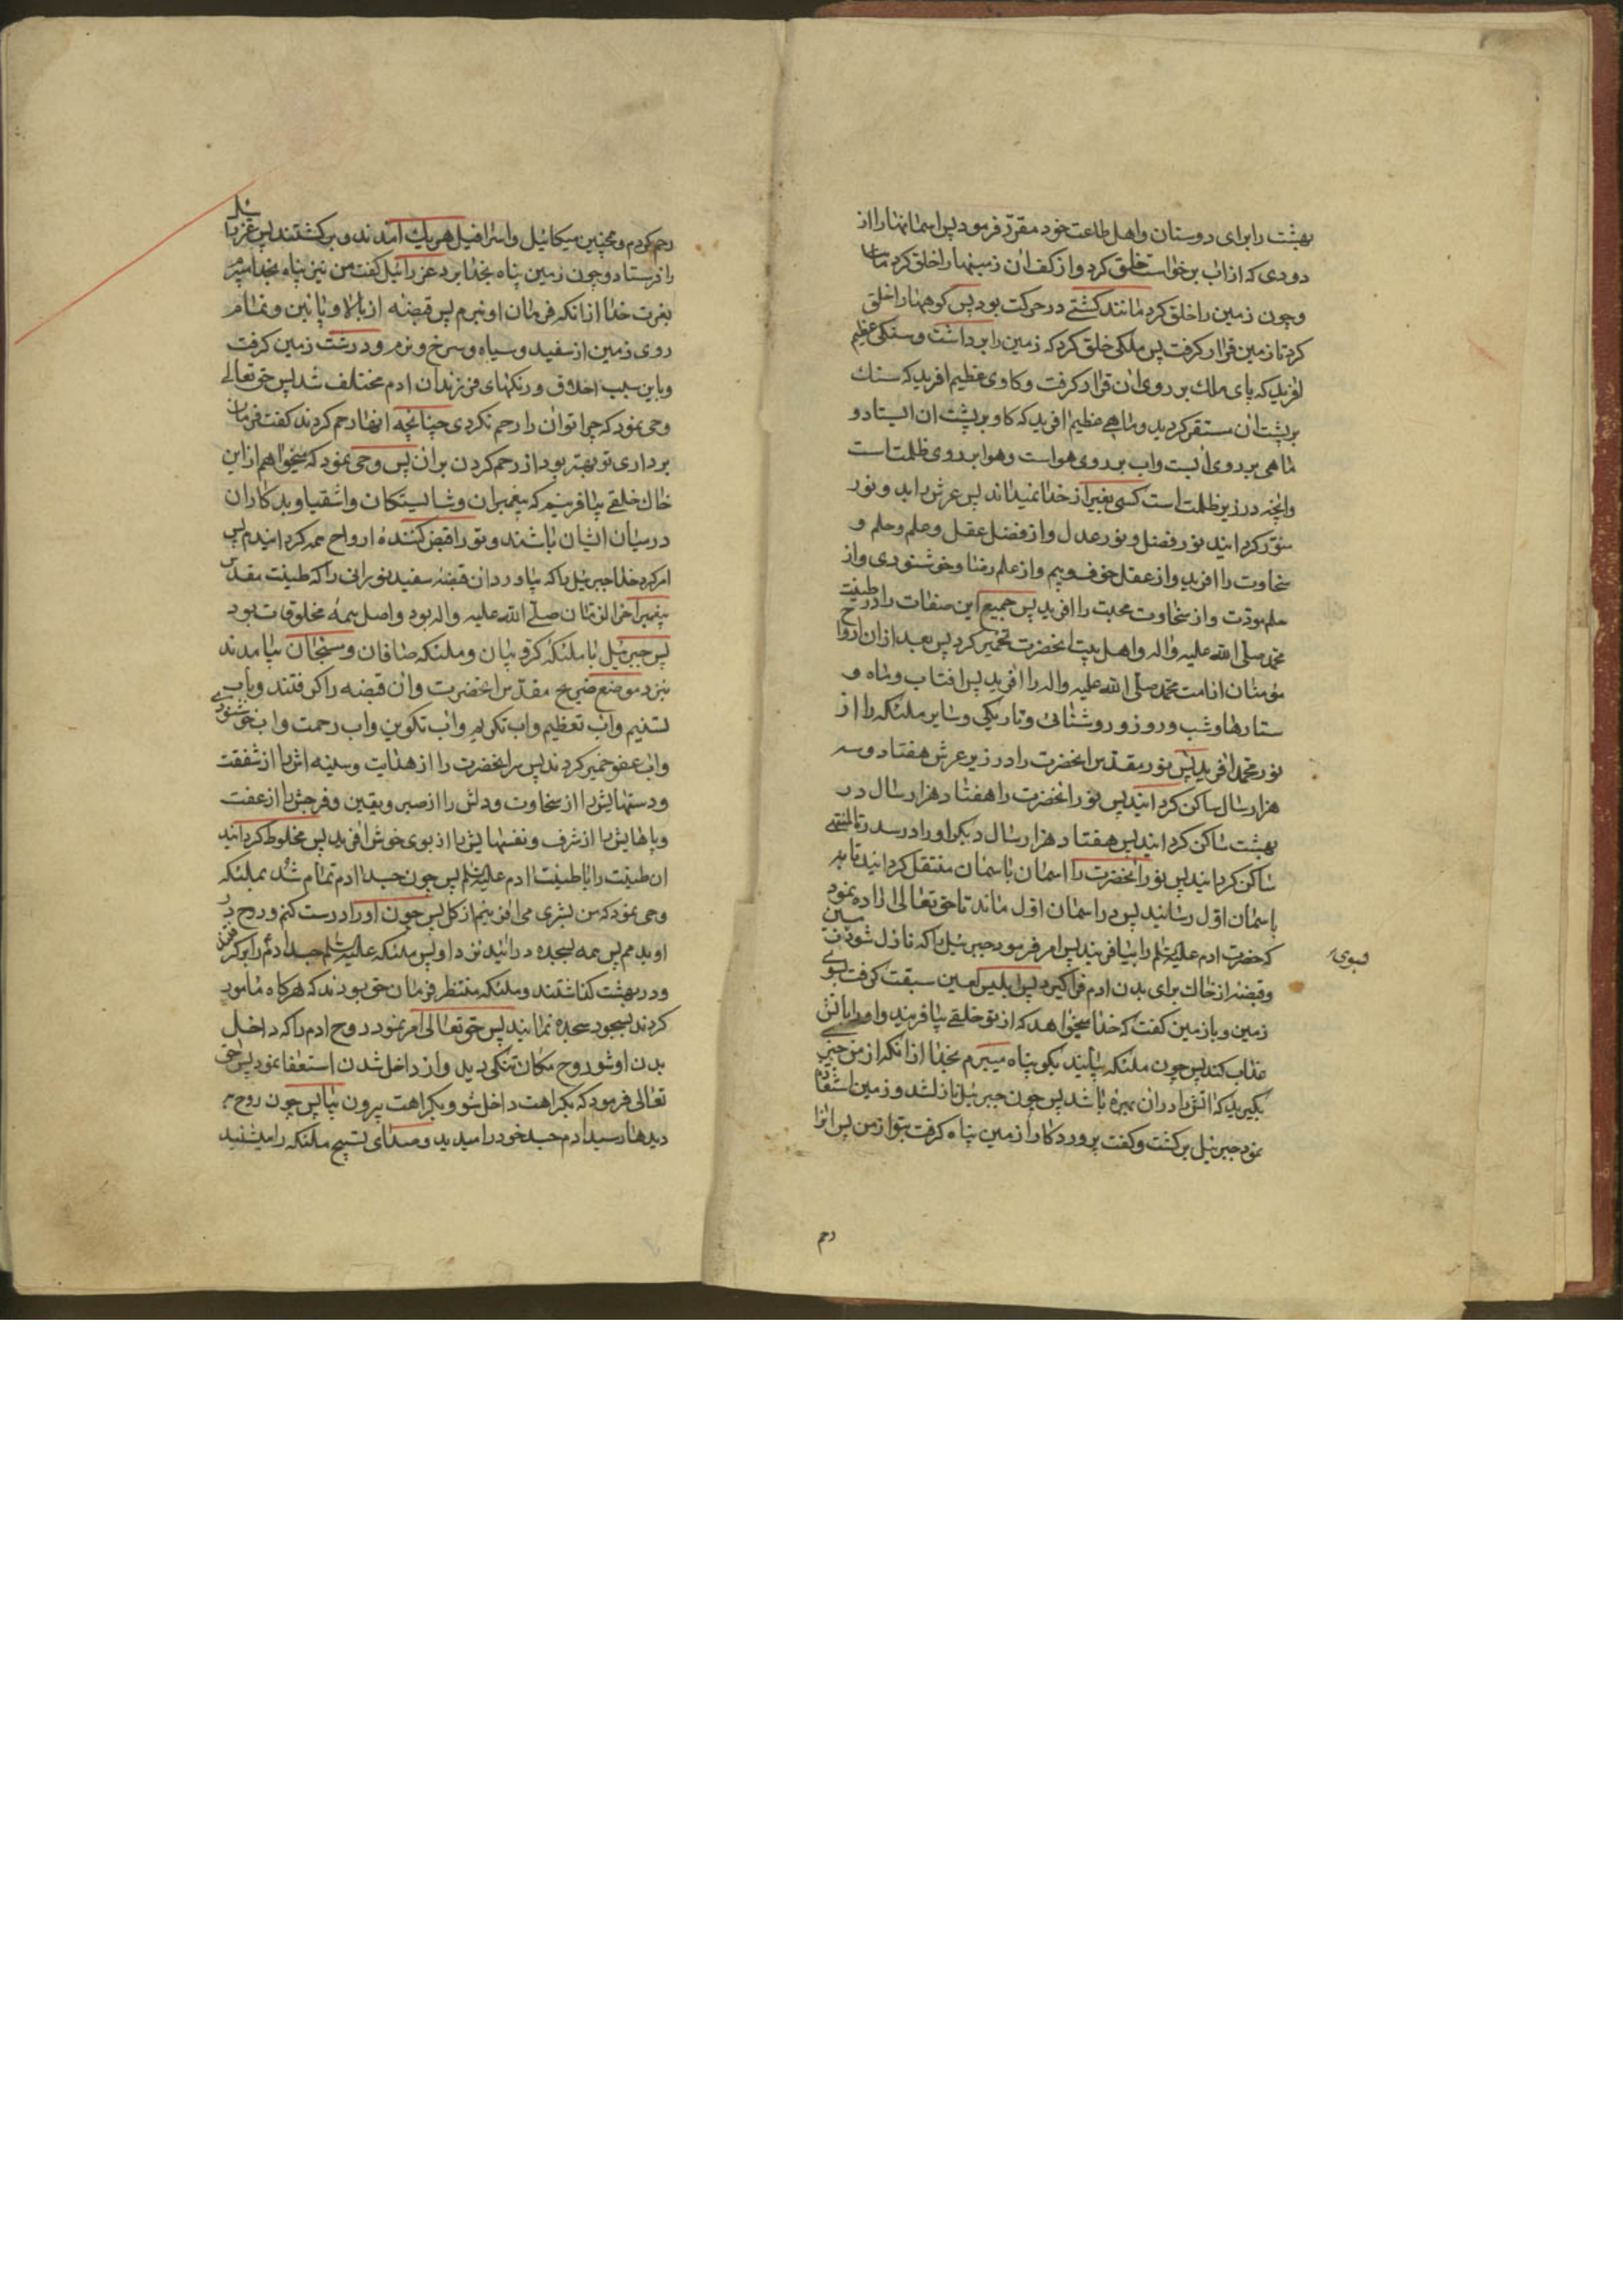 بهشت را برای دوستان واهل طاعت خود مقرر فرمود پس اسمانها را از
دودی که از اب برخواست خلق کرد واز کف ان زمینها را خلق کرد
وچون زمین را خلق کرد مانند کشتی در حرکت بود پس کوهها را خلق
کرد تا زمین قرار کرفت پس ملکی خلق کرد که زمین را برداشت وسنکی عظیم
افرید که پای ملک بر روی ان قرار کرفت وکاوی عظیم افرید که سنک
بر پشت ان مستقر کردید وماهی عظیم افرید که کاو بر پشت ان ایستاد و
ماهی بر روی ابست واب بر روی هواست وهوا بر روی ظلمت است
وانچه در زیر ظلمت است کسی بغیر از خدا نمیداند پس عرش را بد ونور
منور کردانید نور فضل ونور عدل واز فضل عقل وعلم وحلم و
سخاوت را افرید واز عقل خوف وبیم واز علم رضا وخوشنودی واز
حلم مودت واز سخاوت محبت را افرید پس جمیع این صفات را در طینت
محمد صلی الله علیه واله واهل بیت انحضرت تخمیر کرد پس بعد از ان ارواح
مؤمنان از امت محمد صلی الله علیه واله را افرید پس افتاب وماه و
ستارها وشب وروز وروشنائی وتاریکی وسایر ملئکه را از
نور محمد افرید پس نور مقدس انحضرت را در زیر عرش هفتاد وسه
هزار سال ساکن کردانید پس نور انحضرت را هفتاد هزار سال در
بهشت ساکن کردانید پس هفتاد هزار سال دیکر او را در سدرة المنتهی
ساکن کردانید پس نور انحضرت را اسمان باسمان منتقل کردانید تا به
باسمان اول رسانید پس در اسمان اول ماند تا حق تعالی اراده نمود
که حضرت ادم علیه السلم را بیافریند پس امر فرمود جبرئیل را که نازل شود بزمین
بسوی
وقبضه از خاک برای بدن ادم فراکیرد پس ابلیس لعین سبقت کرفت بسوی
زمین وبا زمین کفت که خدا میخواهد که از تو خلقی بیافریند واو را باتش
عذاب کند پس چون ملئکه بیایند بکو پناه میبرم بخدا از انکه از من چیزی
بکیرید که اتش را در ان بهره باشد پس چون جبرئیل نازل شد وزمین استعاذه
نمود جبرئیل برکشت وکفت پروردکارا زمین پناه کرفت بتو از من پس انرا
رحم
رحم کردم وهمچنین میکائیل واسرافیل هر یک امدند وبرکشتند پس عزرائیل
را فرستاد وچون زمین پناه بخدا برد عزرائیل کفت من نیز پناه بخدا میبرم
بعزت خدا از انکه فرمان او نبرم پس قبضه از بالا وپائین وتمام
روی زمین از سفید وسیاه وسرخ ونرم ودرشت زمین کرفت
وباین سبب اخلاق ورنکهای فرزندان ادم مختلف شد پس حق تعالی
وحی نمود که چرا تو ان را رحم نکردی چنانچه انها رحم کردند کفت فرمان
برداری تو بهتر بود از رحم کردن بر ان پس وحی نمود که میخواهم از این
خاک خلقی بیافرینم که پیغمبران وشایستکان واشقیا وبدکاران
در میان ایشان باشند وتو را قبض کننده ارواح همه کردانیدم پس
امر کرد خدا جبرئیل را که بیاورد ان قبضه سفید نورانی را که طینت مقدس
پیغمبر اخر الزمان صلی الله علیه واله بود واصل همه مخلوقات بود
پس جبرئیل با ملئکه کروبیان وملئکه صافان ومسبحان بیامدند
بنزد موضع ضریح مقدس انحضرت وان قبضه را کرفتند وباب
تسنیم واب تعظیم واب تکریم واب تکوین واب رحمت واب خوشنودی
واب عفو خمیر کردند پس سر انحضرت را از هدایت وسینه اش را از شفقت
ودستهایش را از سخاوت ودلش را از صبر ویقین وفرجش را از عفت
وپاهایش را از شرف ونفسهایش را از بوی خوش افرید پس مخلوط کردانید
ان طینت را با طینت ادم علیه السلم پس چون جسد ادم تمام شد بملئکه
وحی نمود که من بشری می افرینم از کل پس چون او را درست کنم وروح در
او بدمم پس همه بسجده درائید نزد او پس ملئکه علیه السلم جسد ادم را برکرفتند
ودر بهشت کذاشتند وملئکه منتظر فرمان حق بودند که هرکاه مامور
کردند بسجود سجده نمایند پس حق تعالی امر نمود روح ادم را که داخل
بدن او شو روح مکان تنکی دید واز داخل شدن استعفا نمود پس حق
تعالی فرمود که بکراهت داخل شو وبکراهت بیرون بیا پس چون روح به
دیدها رسید ادم جسد خود را میدید وصدای تسبیح ملئکه را میشنید